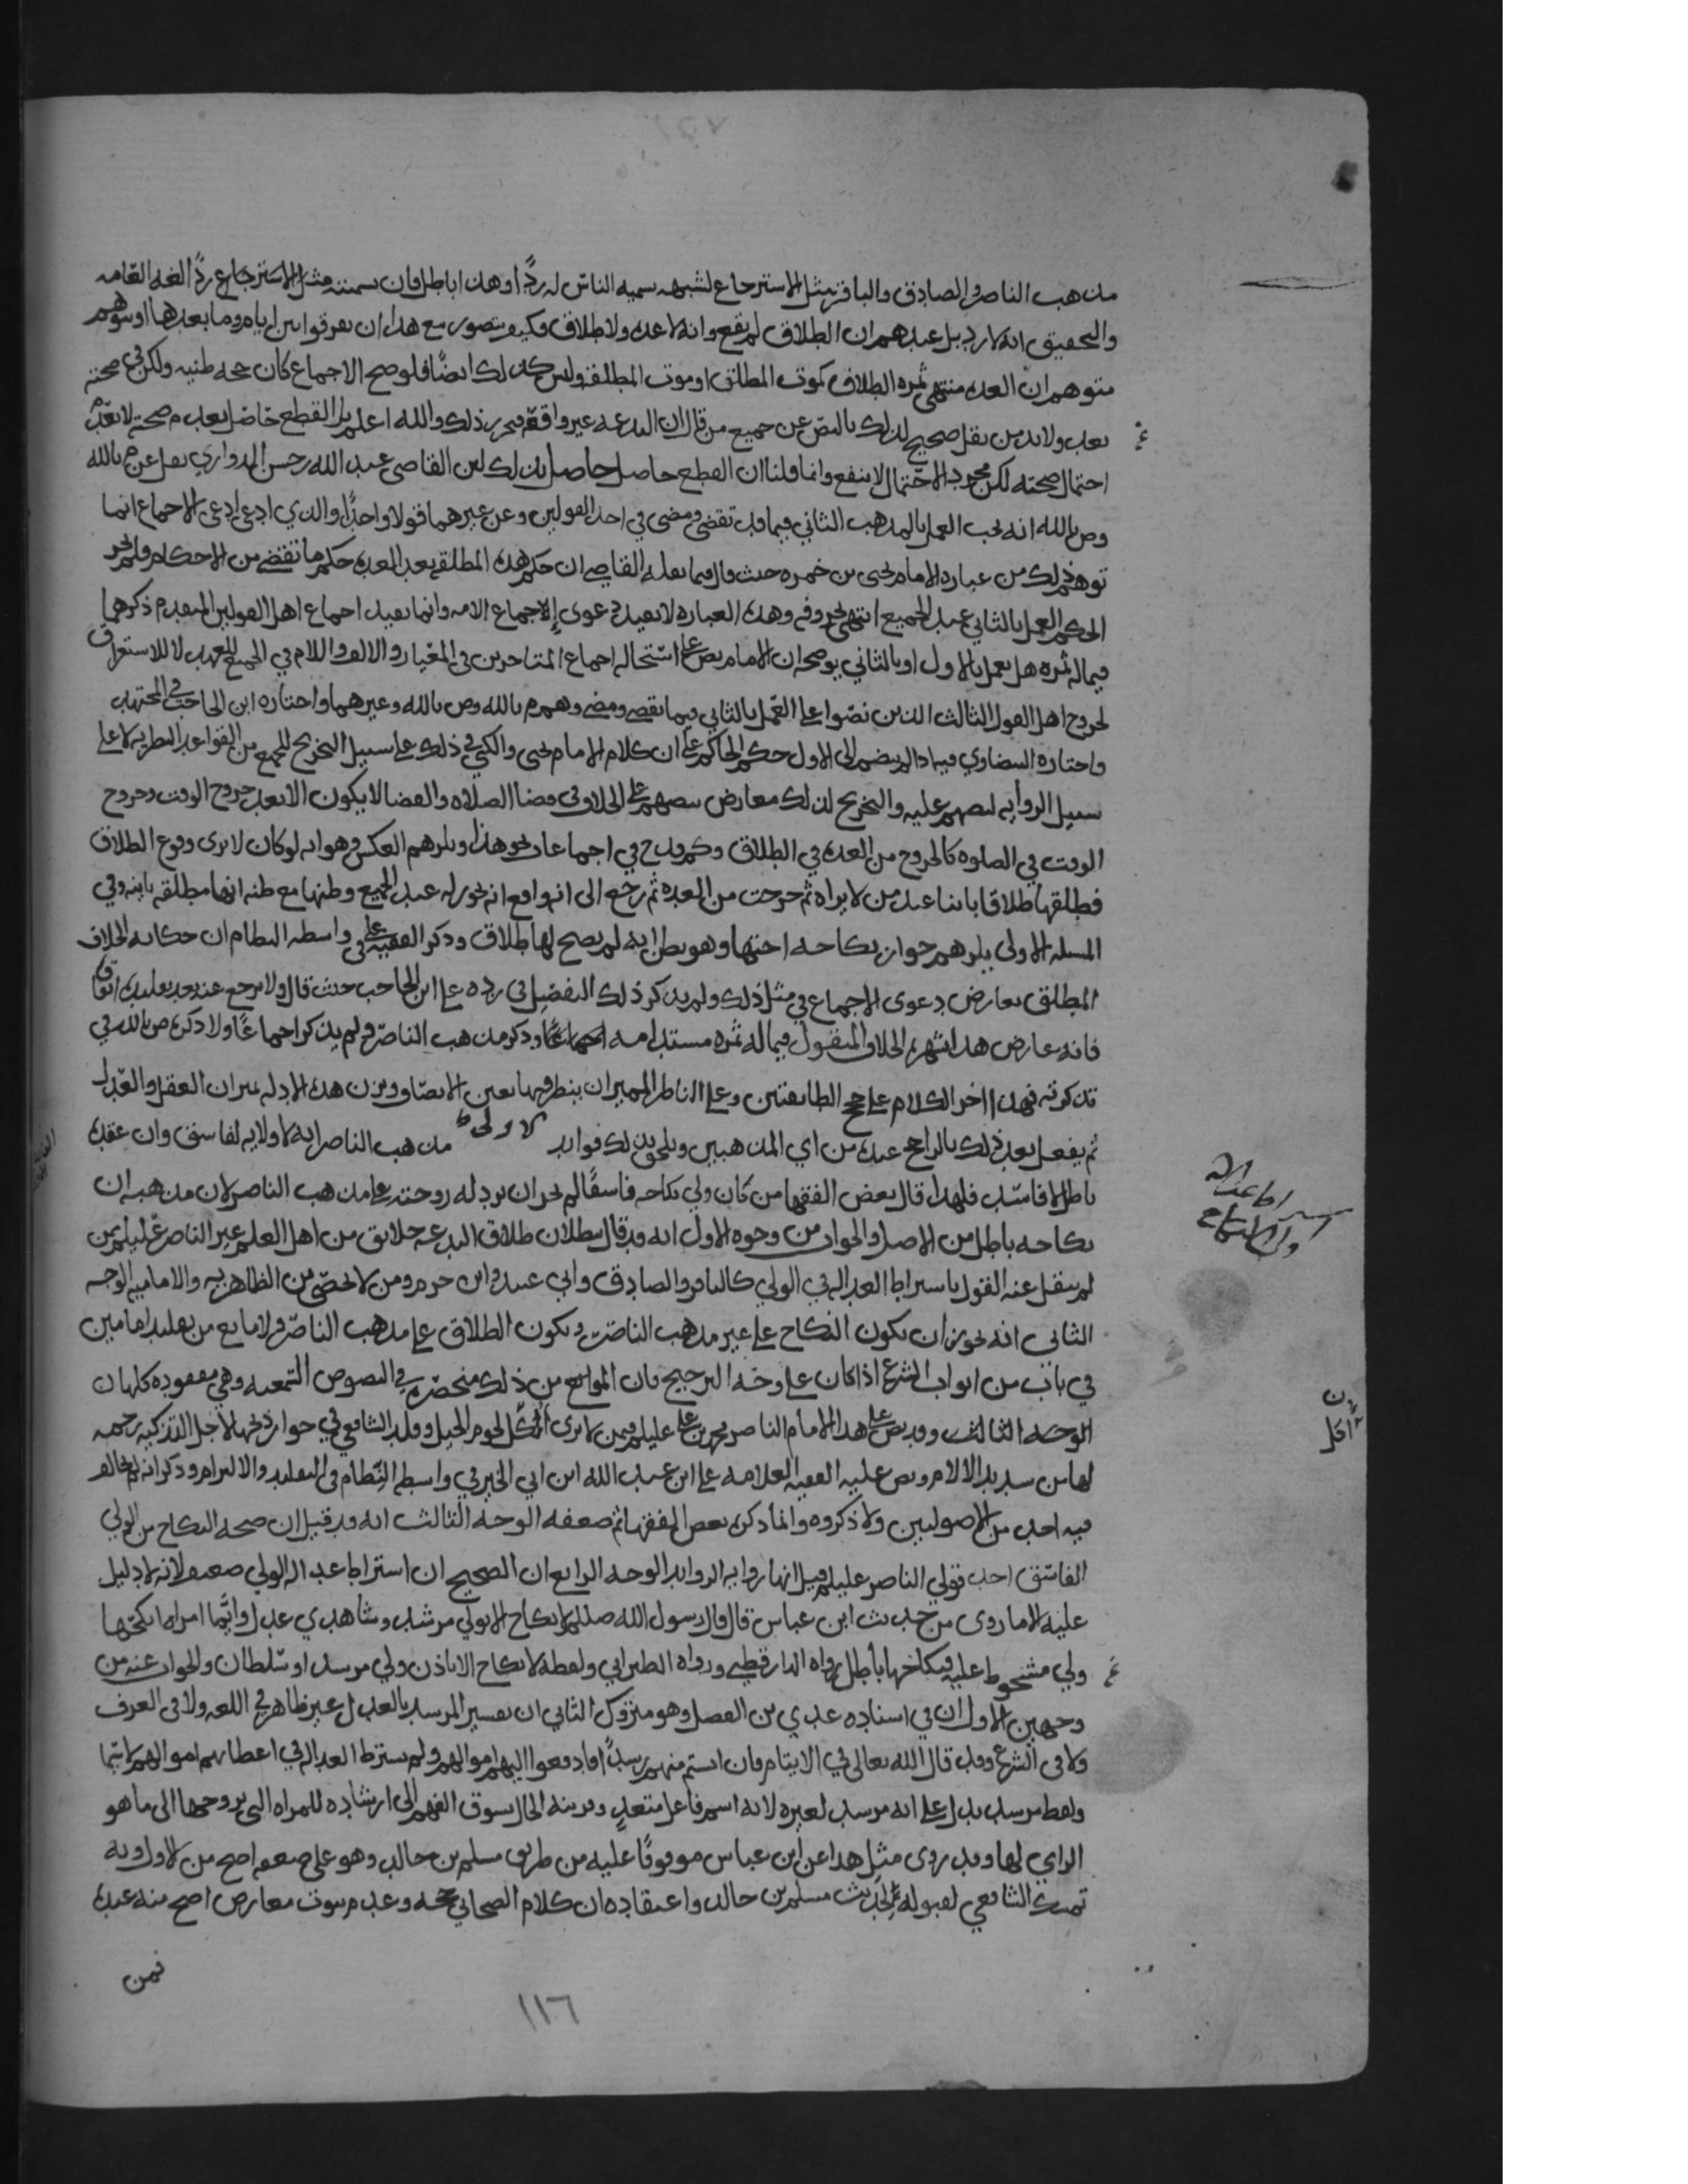 مذهب الناصر والصادق والباقر مثل الاسترجاع لشبهه سميه الناس له ردًا وهذا باطل فان سمته مثل الاسترجاع ردًا لغه العامه
والتحقيق انه لا رد بل عندهم ان الطلاق لم يقع وانه لا عده ولا طلاق فكيف يتصور مع هذا ان يفرقوا بين ايامه وما بعدها او يتوهم
متوهم ان العده منتهى ثمره الطلاق كموت المطلق او موت المطلقه وليس كذلك ايضًا فلو صح الاجماع كان حجه ظنيه ولكن في صحته
بعد ولا بد من نقل صحيح لذلك بالنص عن جميع من قال ان البدعه غير واقعه فحرر ذلك والله اعلم بل القطع حاصل بعدم صحته لا بعدم
احتمال صحته لكن مجرد الاحتمال لا ينفع وانما قلنا ان القطع حاصل حاصل بذلك لان القاضي عبد الله بن حسن الدواري نقل عن م بالله
وص بالله انه يجب العمل بالمذهب الثاني فيما قد تقضى ومضى في احد القولين وعن غيرهما قولا واحدًا والذي ادعى ادعى الاجماع انما
توهم ذلك من عباره الامام يحيى بن حمزه حيث قال فيما نقله القاضي ان حكم هذه المطلقه بعد العده حكم ما تقضى من الاحكام ولم يخر
الحكم العمل بالثاني عند الجميع انتهى بحروفه وهذه العباره لا تفيد دعوى الاجماع الامه وانما تفيد اجماع اهل القولين المتقدم ذكرهما
فيما له ثمره هل يعمل بالاول او بالثاني يوضحه ان الامام نص على استحاله اجماع المتاخرين في المعيار والالف واللام في الجميع للعهد لا للاستغراق
لخروج اهل القول الثالث الذين نصوا على العمل بالثاني فيما نقضي ومضى وهم م بالله وص بالله وغيرهما واختاره ابن الحاجب في المجتهد
واختاره البيضاوي فيما اذا لم ينضم الى الاول حكم الحاكم على ان كلام الامام يحيى والكني في ذلك على سبيل التخريج للجميع من القواعد النظريه لا على
سبيل الروايه لنصهم عليه والتخريج لذلك معارض بنصهم على الخلاف في قضا الصلاه والقضا لا يكون الا بعد خروج الوقت وخروج
الوقت في الصلوه كالخروج من العده في الطلاق وكم قدح في اجماعات نحو هذا ويلزمهم العكس وهو انه لو كان لا يرى وقوع الطلاق
فطلقها طلاقا باينا عند من لا يراه ثم خرجت من العده ثم رجع الى انه واقع انه يجوز له عند الجميع وطئها مع ظنه انها مطلقه باينه وفي
المسله الاولى يلزمهم جواز نكاحه اختها وهو يظن انه لم يصح لها طلاق وذكر الفقيه علي في واسطه النظام ان حكايه الخلاف
المطلق تعارض دعوى الاجماع في مثل ذلك ولم يذكر ذلك التفصيل في رده على ابن الحاجب حيث قال ولا يرجع عنه بعد تقليده اتفاقا
فانه عارض هذا بشهره الخلاف المنقول فيما له ثمره مستدامه اجماعًا وذكر مذهب الناصر ولم يذكر اجماعًا ولا ذكره ص بالله في
تذكرته فهذا اخر الكلام على حجج الطايفتين وعلى الناظر المميز ان ينظر فيها بعين الانصاف ويزن هذه الادله بميزان العقل والعدل
ثم يفعل بعد ذلك بالراجح عنده من اي المذهبين ويلحق بذلك فوايد الاولى مذهب الناصر انه لا ولايه لفاسق وان عقده
باطل لا فاسد فلهذا قال بعض الفقها من كان ولي نكاحه فاسقًا لم يجز ان ترد له زوجته على مذهب الناصر لان مذهبه ان
نكاحه باطل من الاصل والجواب من وجوه الاول انه قد قال ببطلان طلاق البدعه خلايق من اهل العلم غير الناصر عليلم ممن
لم ينقل عنه القول باشتراط العداله في الولي كالباقر والصادق وابي عبيده وابن حزم ومن لا يحصى من الظاهريه والاماميه الوجه
الثاني انه يجوز ان يكون النكاح على غير مذهب الناصر ويكون الطلاق على مذهب الناصر ولا مانع من تقليد امامين
في باب من ابواب الشرع اذا كان على وجه الترجيح فان المانع من ذلك منحصر في النصوص السمعيه وهي مفقوده كلها ن
الوجه الثالث وقد نص على هذا الامام الناصر محمد بن علي عليلم فيمن لا يرى اكل لحوم الخيل وقلد الشافعي في جواز ذبحها لاجل التذكيه رحمه
لها من شديد الالام ونص عليه الفقيه العلامه علي ابن عبد الله ابن ابي الخير في واسطه النظام في التقليد والالتزام وذكر انه لم يخالف
فيه احد من الاصوليين ولا ذكروه وانما ذكره بعض المفقها ثم ضعفه الوجه الثالث انه قد قيل ان صحه النكاح من الولي
الفاسق احد قولي الناصر عليلم قيل انها روايه الزوايد الوجه الرابع ان الصحيح ان اشتراط عداله الولي ضعيف لانه لا دليل
عليه الا ما روى من حديث ابن عباس قال قال رسول الله صللم لا نكاح الا بولي مرشد وشاهدي عدل وايما امراه انكحها
ولي مسخوط عليه فنكاحها باطل رواه الدارقطني ورواه الطبراني ولفظه لا نكاح الا باذن ولي مرشد او سلطان والجواب عنه من
وجهين الاول ان في اسناده عدي بن الفضل وهو متروك الثاني ان تفسير المرشد بالعدل غير ظاهر في اللغه ولا في العرف
ولا في الشرع وقد قال الله تعالى في الايتام فان انستم منهم رشدًا فادفعوا اليهم اموالهم ولم يشترط العداله في اعطائهم اموالهم لا سيما
ولفظ مرشد يدل على انه مرشد لغيره لانه اسم فاعل متعدٍ وقرينه الحال بسوق الفهم الى ارشاده للمراه التي يزوجها الى ما هو
الراي لها وقد روى مثل هذا عن ابن عباس موقوفًا عليه من طريق مسلم بن خالد وهو على ضعفه اصح من الاول وبه
تمسك الشافعي لقبوله لحديث مسلم بن خالد واعتقاده ان كلام الصحابي حجه وعدم ثبوت معارض اصح منه عنده
فمن
١١٦